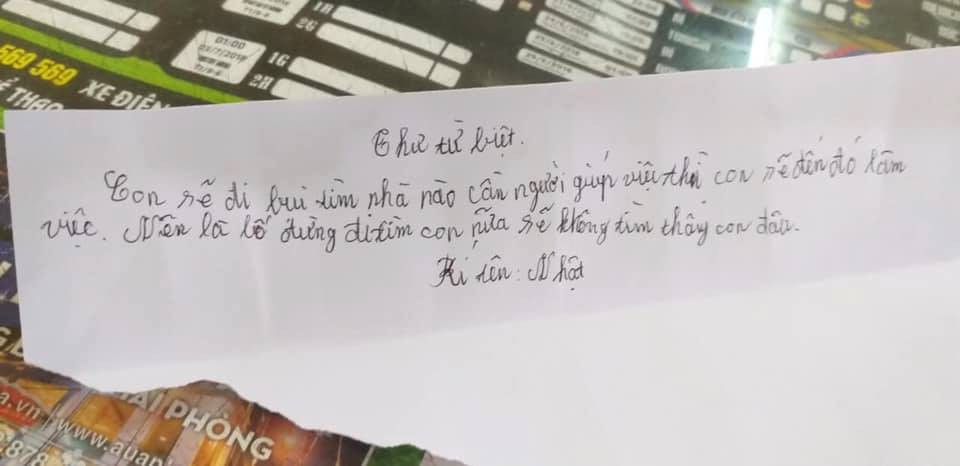 1R
2G
01:00
03/7/2019
1G
2R
569 569 XE ĐIỆN
THAO
Thư từ biệt.
Con sẽ đi bụi tìm nhà nào cần người giúp việc thì con sẽ đến đó làm
việc. Nên là bố đừng đi tìm con nữa sẽ không tìm thấy con đâu.
Kí tên: Nhật
HẢI PHÒNG
a.vn
www.auap
878